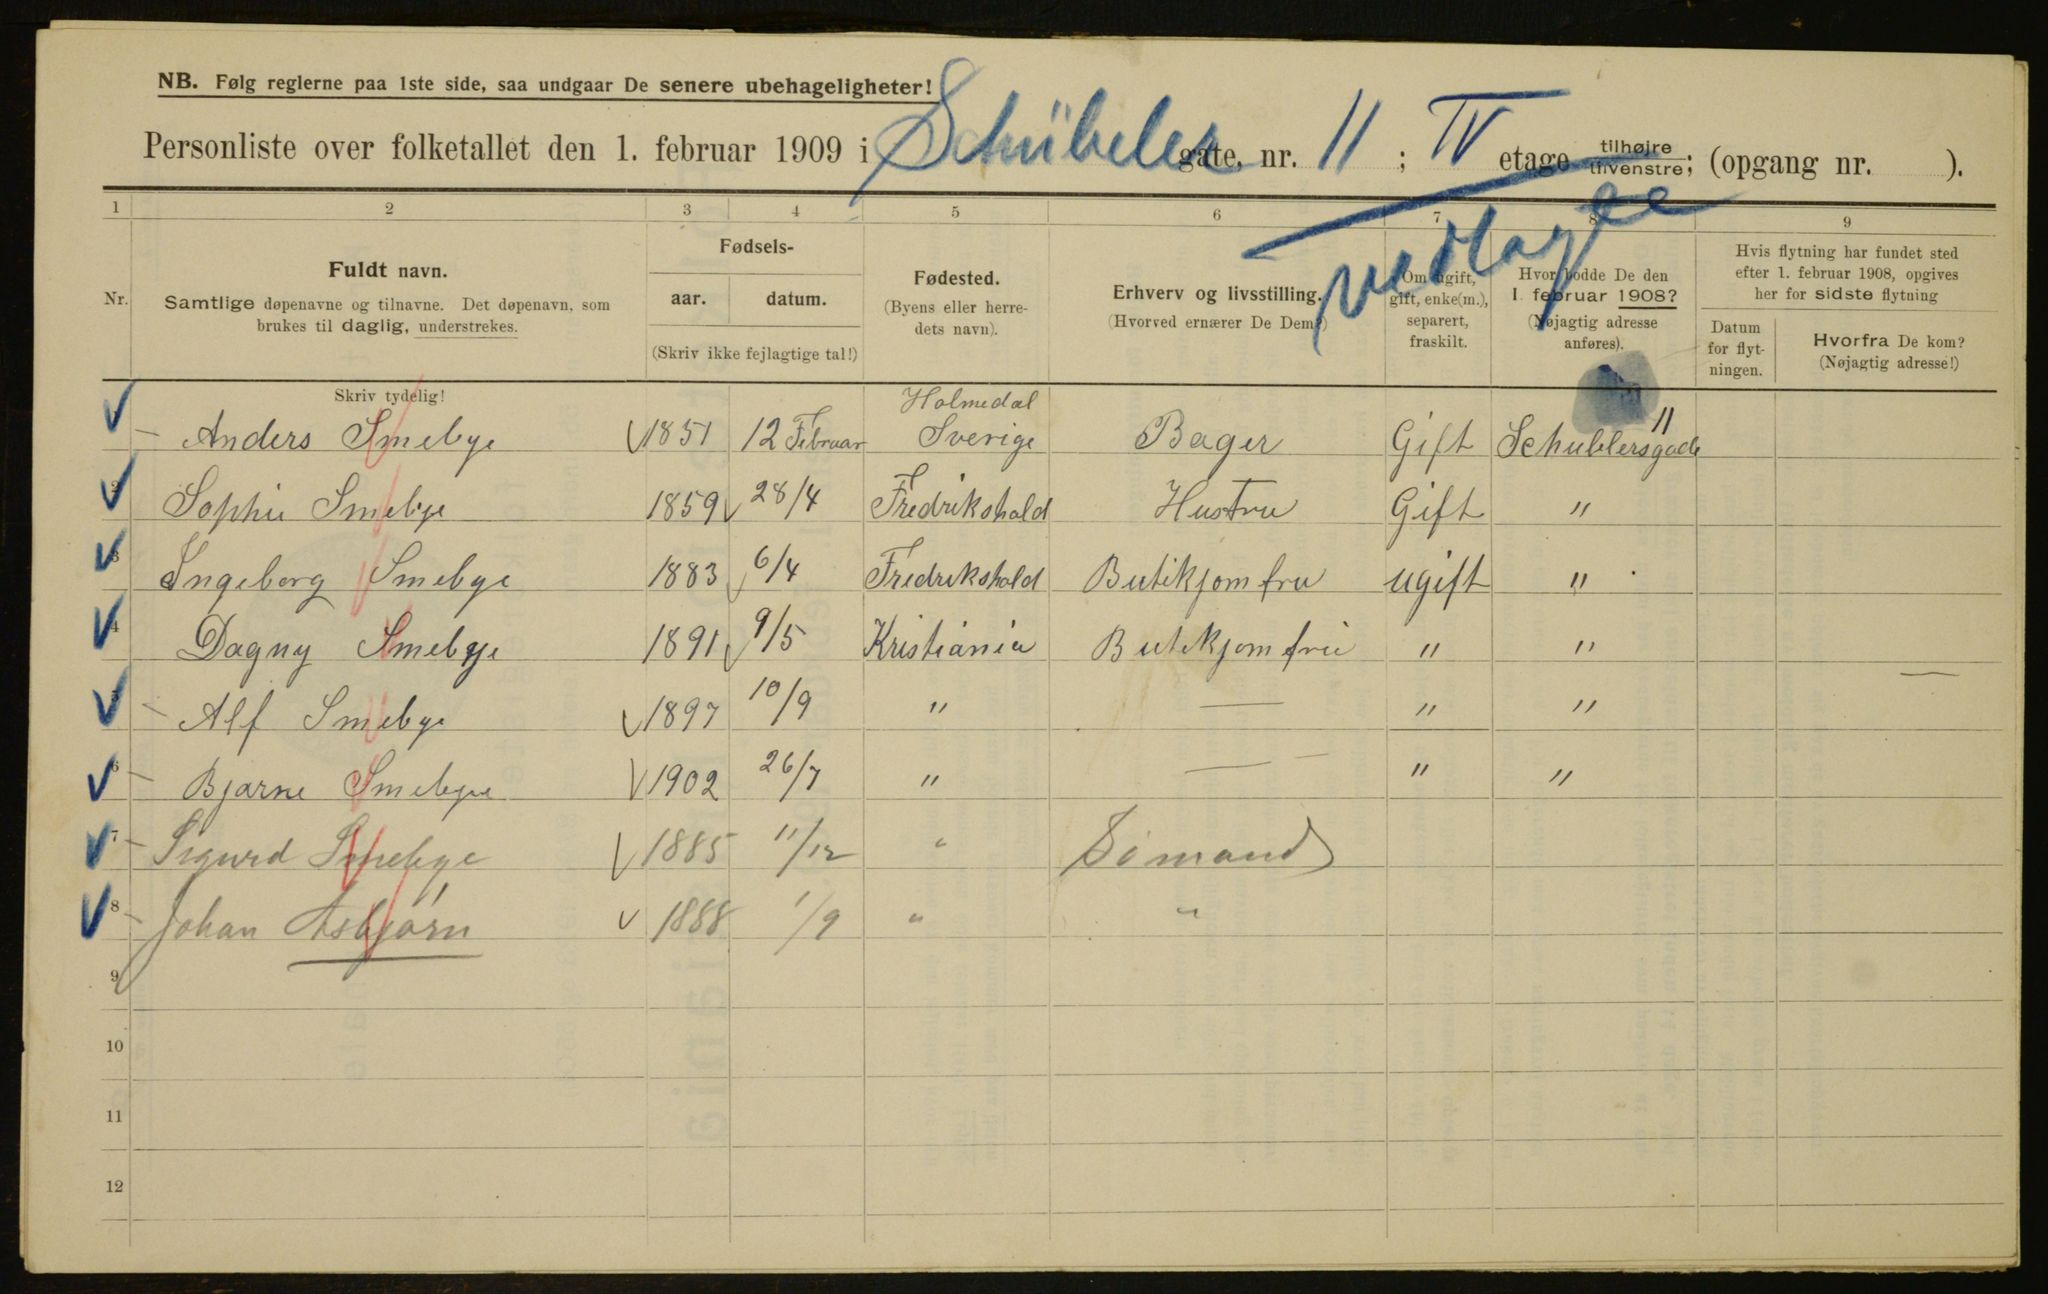 NB. Følg reglerne paa 1ste side, saa undgaar De senere ubehageligheter!
Personliste over folketallet den 1. februar 1909 i Schübeler gate, nr. 11 ; IV etage tilhøjre tilvenstre; (opgang nr. ).
vedlagte
1 2 3 4 5 6 7 8 9
Nr.
Fuldt navn.
Samtlige døpenavne og tilnavne. Det døpenavn, som
brukes til daglig, understrekes.
Fødsels-
aar. datum.
(Skriv ikke fejlagtige tal!)
Fødested.
(Byens eller herre-
dets navn).
Erhverv og livsstilling.
(Hvorved ernærer De Dem?)
Om ugift,
gift, enke(m.),
separert,
fraskilt.
Hvor bodde De den
1. februar 1908?
(Nøjagtig adresse
anføres).
Hvis flytning har fundet sted
efter 1. februar 1908, opgives
her for sidste flytning
Datum
for flyt-
ningen.
Hvorfra De kom?
(Nøjagtig adresse!)
Skriv tydelig!
1 Anders Smebye 1851 12 Februar Holmedal Sverige Bager Gift Schublersgade 11
2 Sophie Smebye 1859 28/4 Fredrikshald Hustru Gift "
3 Ingeborg Smebye 1883 6/4 Fredrikshald Butikjomfru ugift "
4 Dagny Smebye 1891 9/5 Kristiania Butikjomfru " "
5 Alf Smebye 1897 10/9 " — " "
6 Bjarne Smebye 1902 26/7 " — " "
7 Sigurd Smebye 1885 11/12 " Sømand
8 Johan Asbjørn 1888 1/9 " "
9
10
11
12